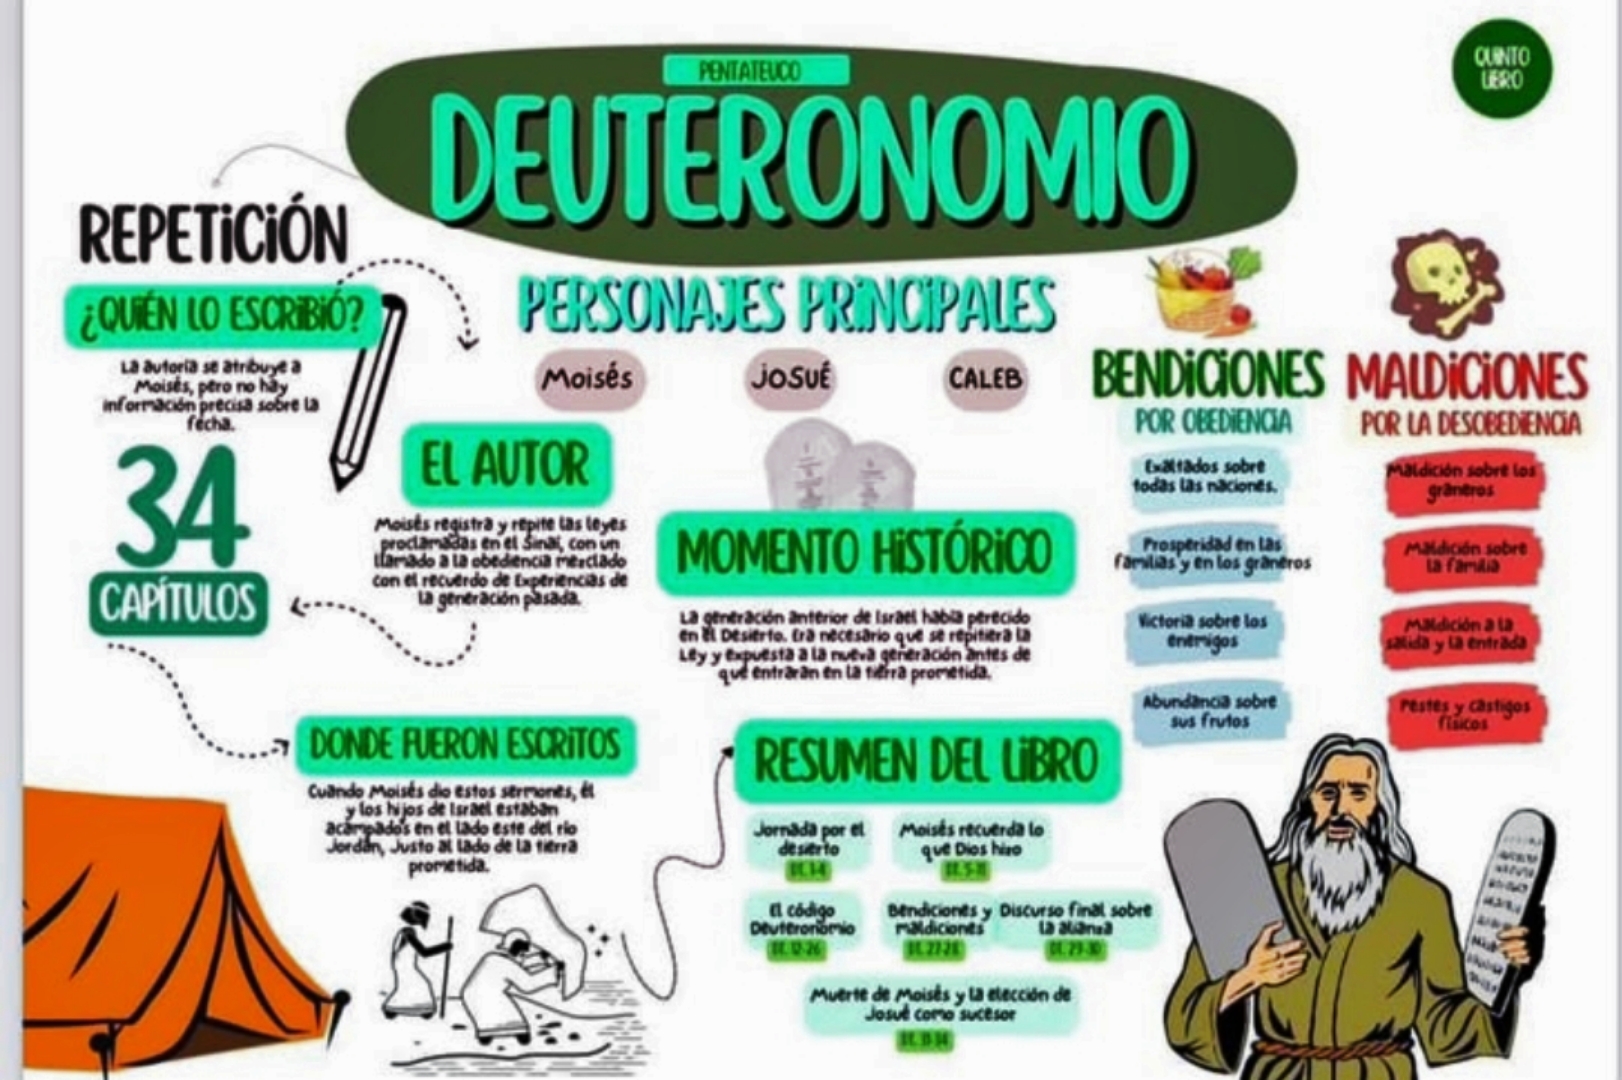 PENTATEUCO
DEUTERONOMIO
QUINTO
LIBRO
REPETICIÓN
¿QUIÉN LO ESCRIBIÓ?
La autoría se atribuye a
Moisés, pero no hay
información precisa sobre la
fecha.
34
CAPÍTULOS
PERSONAJES PRINCIPALES
Moisés
JOSUÉ
CALEB
EL AUTOR
Moisés registra y repite las leyes
proclamadas en el Sinaí, con un
llamado a la obediencia mezclado
con el recuerdo de Experiencias de
la generación pasada.
MOMENTO HISTÓRICO
La generación anterior de Israel había perecido
en el Desierto. Era necesario que se repitiera la
Ley y expuesta a la nueva generación antes de
que entraran en la tierra prometida.
DONDE FUERON ESCRITOS
Cuando Moisés dio estos sermones, él
y los hijos de Israel estaban
acampados en el lado este del río
Jordán, Justo al lado de la tierra
prometida.
RESUMEN DEL LIBRO
Jornada por el
desierto
DT. 1-4
Moisés recuerda lo
que Dios hizo
DT. 5-11
El código
Deuteronomio
DT. 12-26
Bendiciones y
maldiciones
DT. 27-28
Discurso final sobre
la alianza
DT. 29-30
Muerte de Moisés y la elección de
Josué como sucesor
DT. 31-34
BENDICIONES
POR OBEDIENCIA
Exaltados sobre
todas las naciones.
Prosperidad en las
familias y en los graneros
Victoria sobre los
enemigos
Abundancia sobre
sus frutos
MALDICIONES
POR LA DESOBEDIENCIA
Maldición sobre los
graneros
Maldición sobre
la familia
Maldición a la
salida y la entrada
Pestes y castigos
físicos